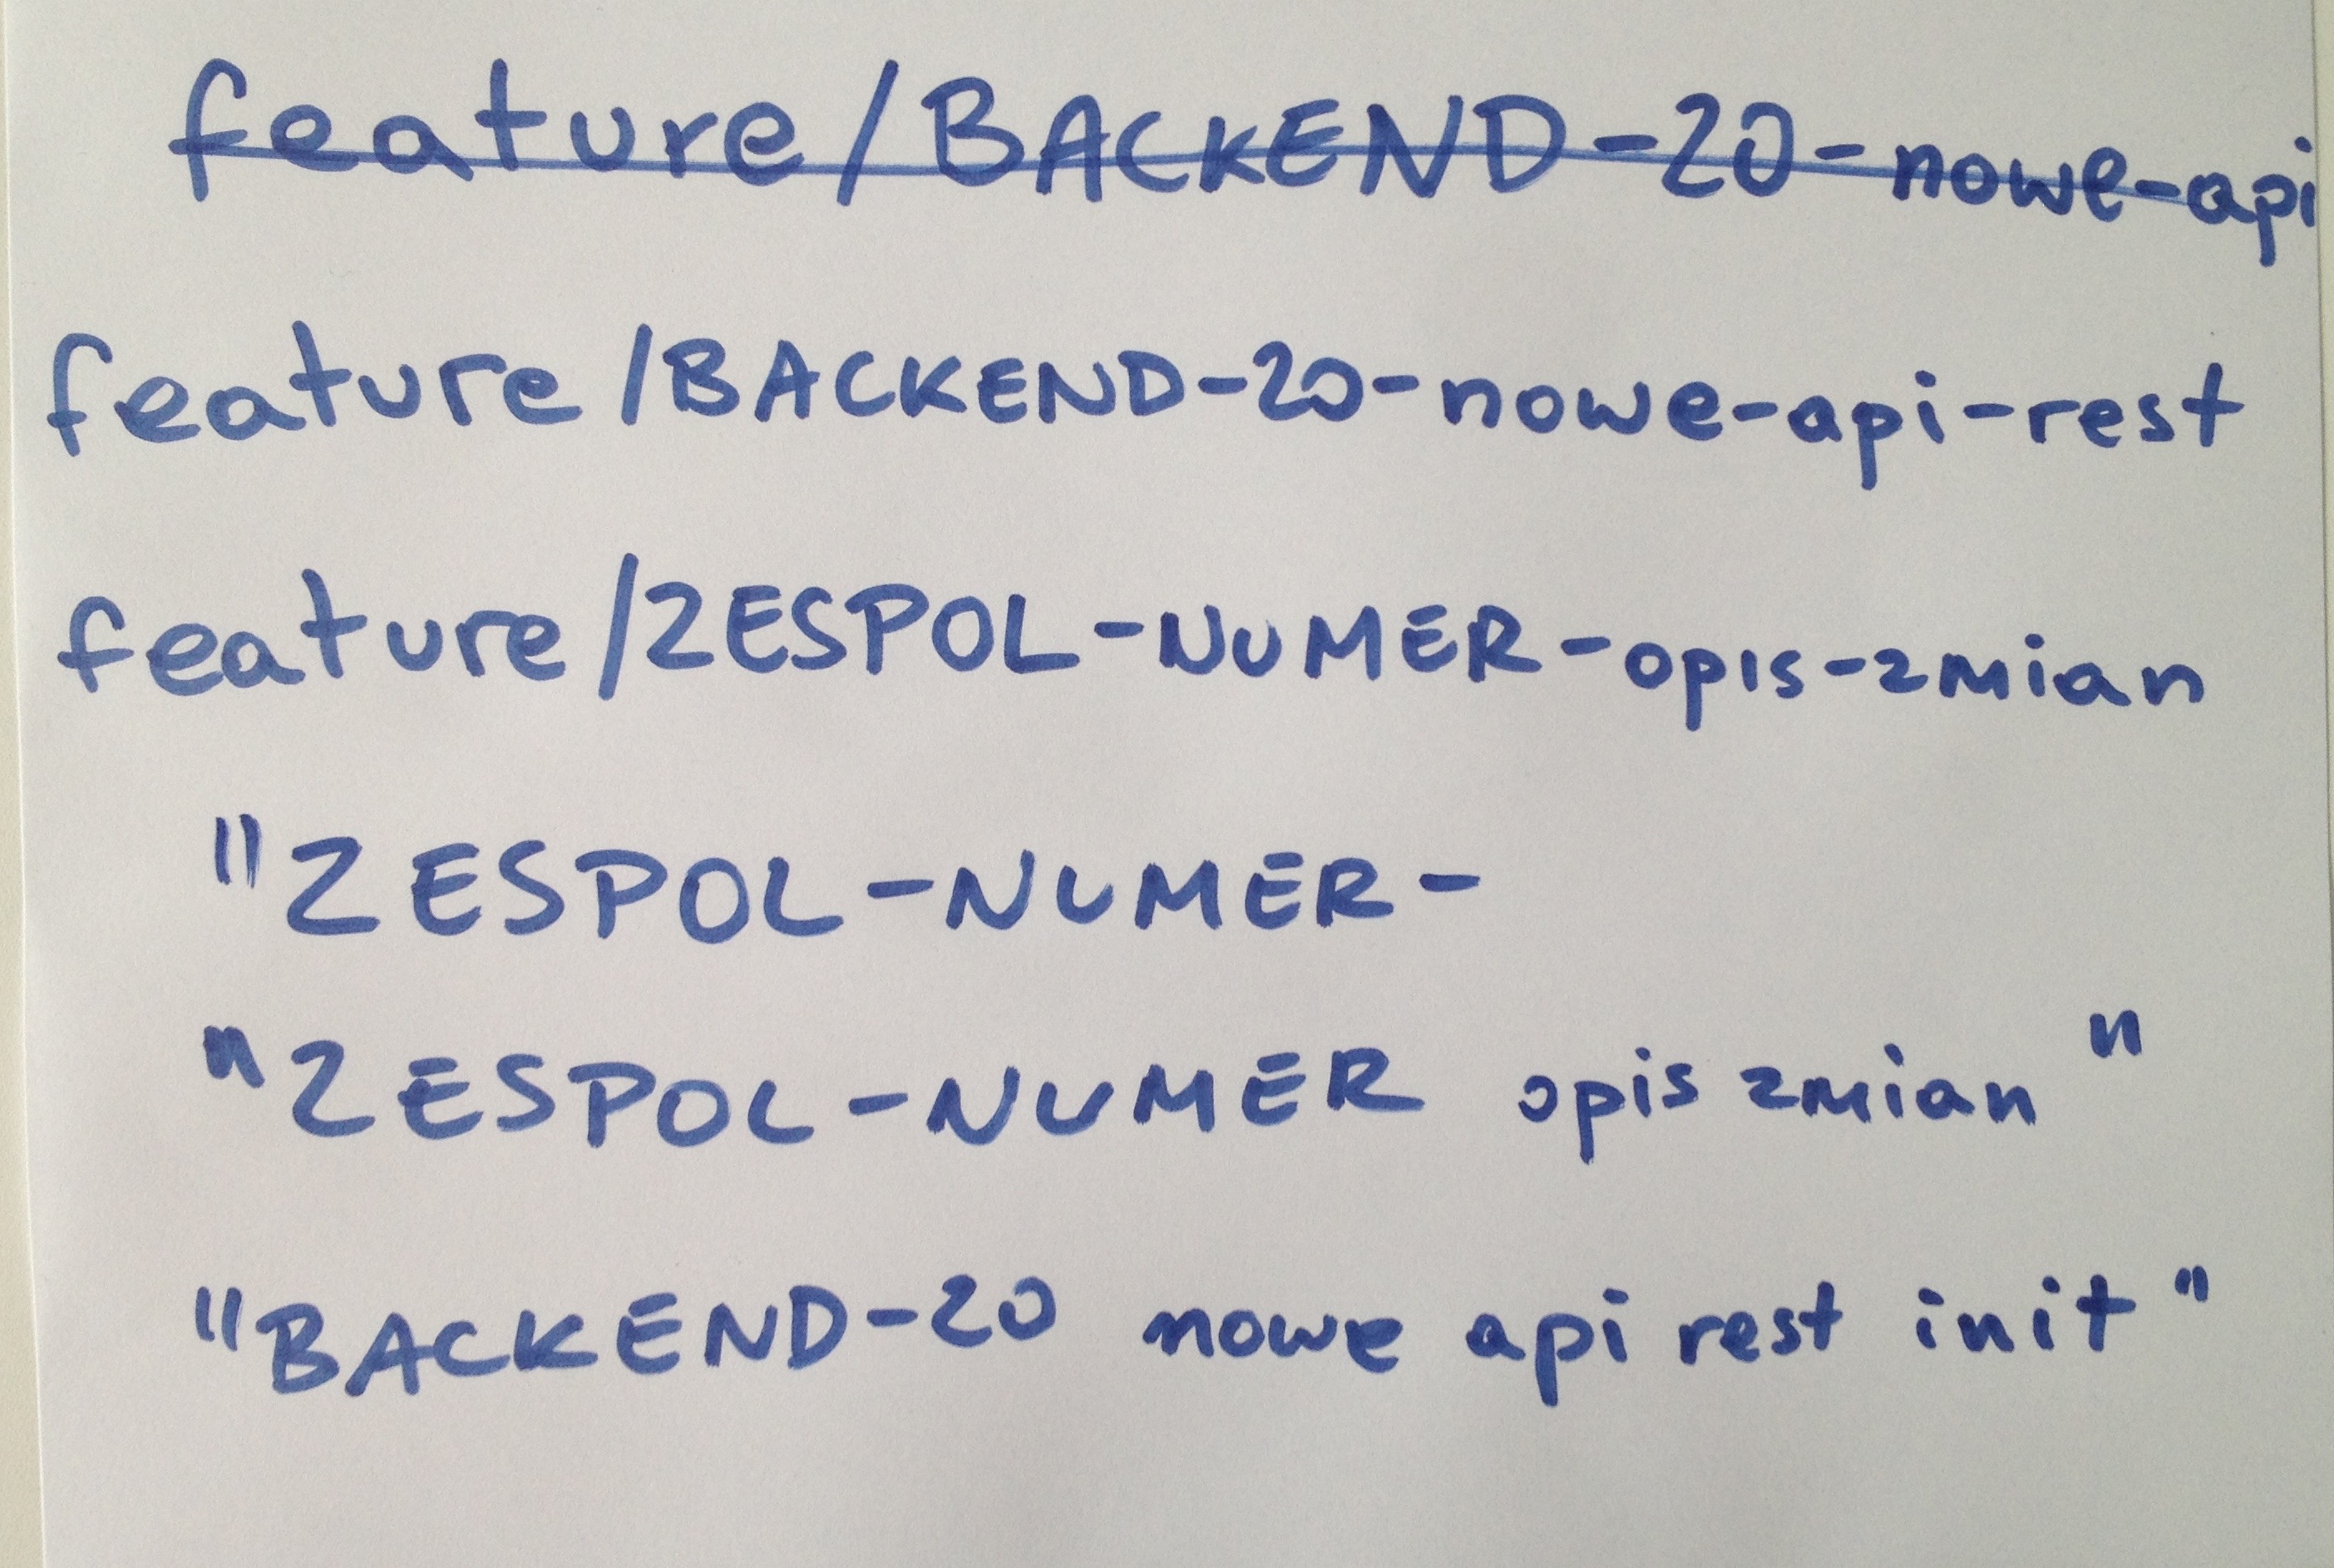 feature/BACKEND-20-nowe-api
feature/BACKEND-20-nowe-api-rest
feature/ZESPOL-NUMER-opis-zmian
"ZESPOL-NUMER-
"ZESPOL-NUMER opis zmian"
"BACKEND-20 nowe api rest init"